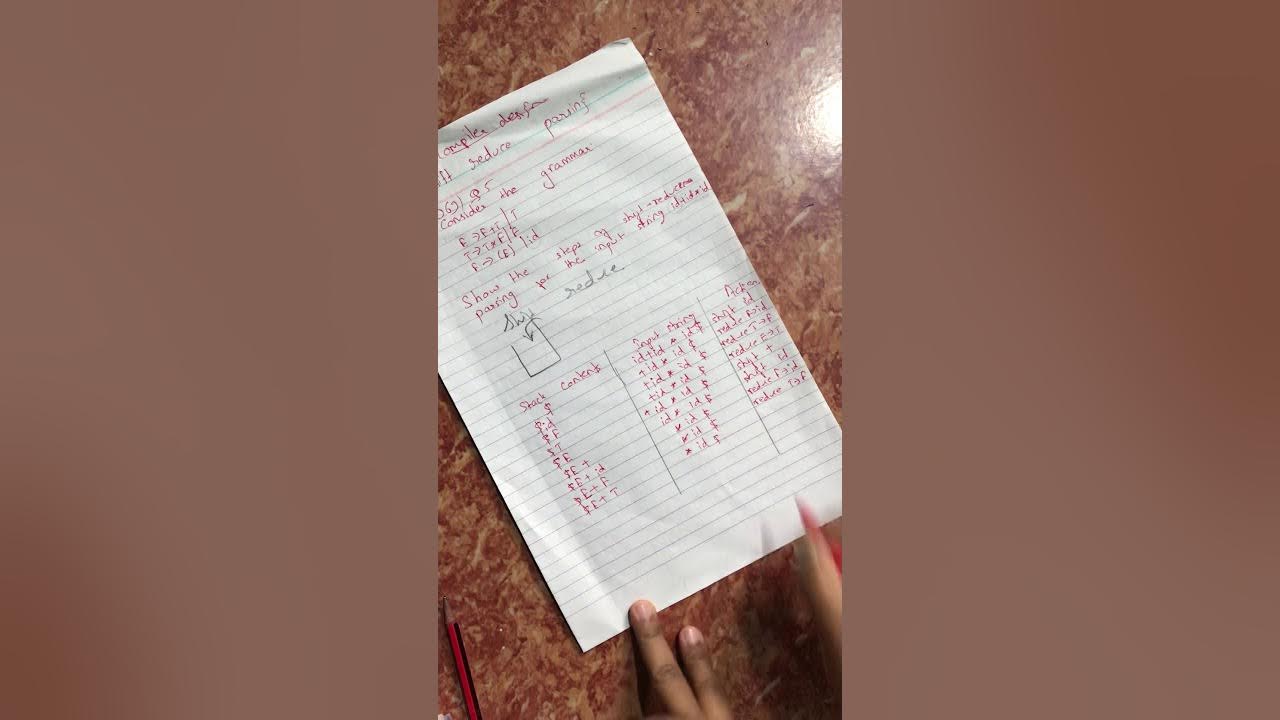 Compiler design
ift reduce parsing
Q5
Consider the grammar:
E → E+T | T
T → T*F | F
F → (E) | id
Show the steps of shift-reduce
parsing for the input string id+id*id
reduce
Stack contents Input string Action
$ id+id * id $ shift id
$id +id * id $ reduce F→id
$F +id * id $ reduce T→F
$T +id * id $ reduce E→T
$E +id * id $ shift +
$E + id * id $ shift id
$E + id * id $ reduce F→id
$E + F * id $ reduce T→F
$E + T * id $